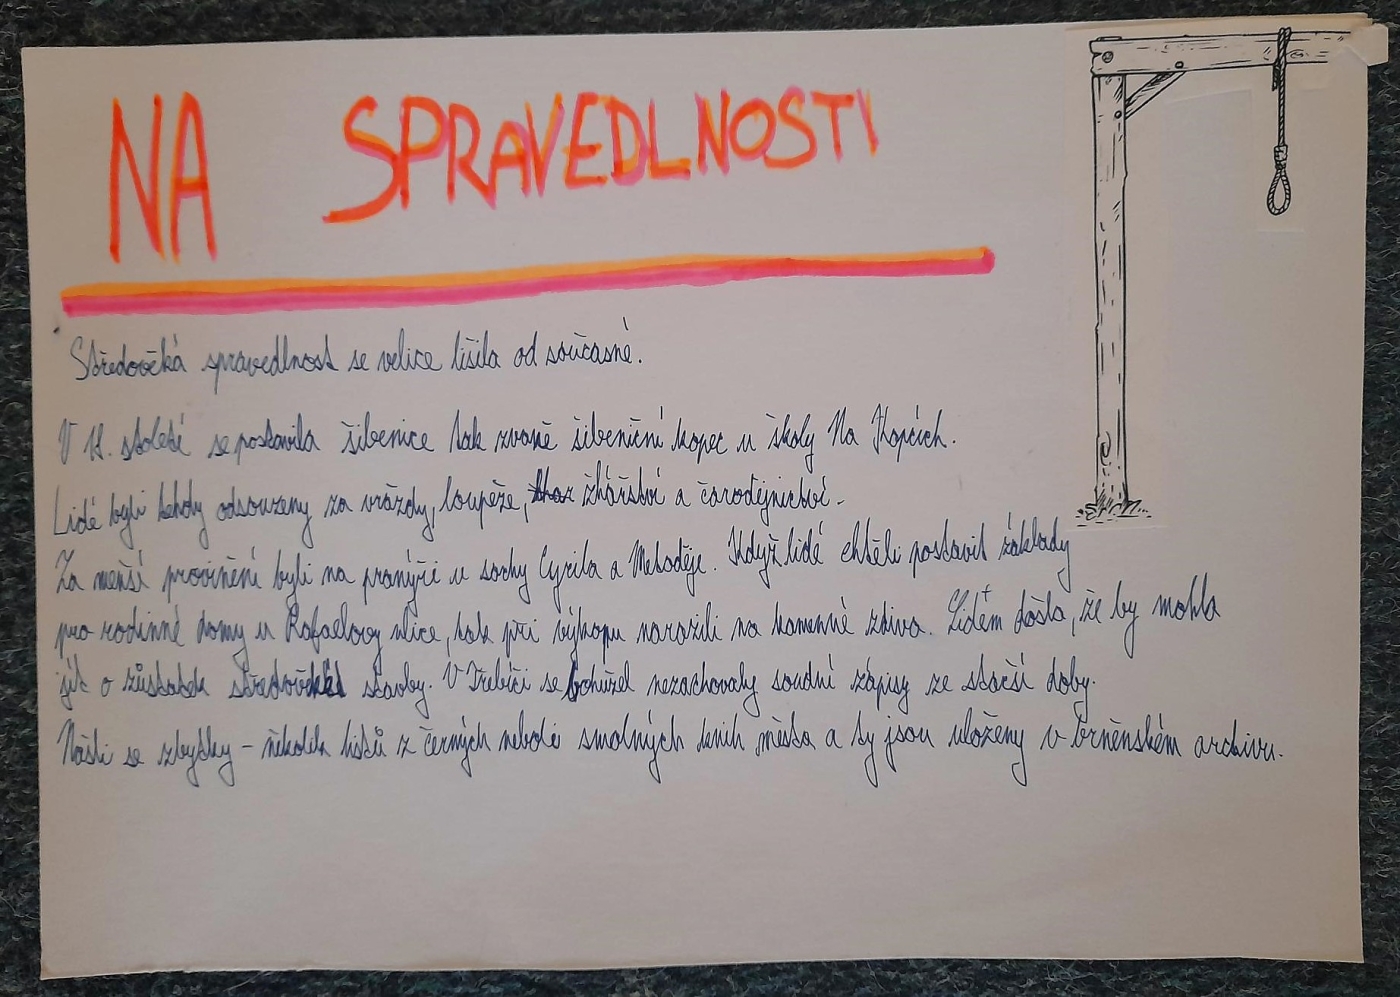 NA SPRAVEDLNOSTI
Středověká spravedlnost se velice lišila od současné.
V století se postavila šibenice tak zvaně šibeniční kopec u školy Na Kopcích.
Lidé byli tehdy odsouzeny za vraždy, loupeže, žhářství a čarodějnictví.
Za menší provinění byli na pranýři u sochy Cyrila a Metoděje. Když lidé chtěli postavit základy
pro rodinné domy u Rafaelovy ulice, tak při výkopu narazili na kamenné zdivo. Lidem došla, že by mohla
jít o zůstatek středověké stavby. V Třebíči se bohužel nezachovaly soudní zápisy ze starší doby.
Našli se zbytky - několik listů z černých neboli smolných knih města a ty jsou uloženy v brněnském archivu.